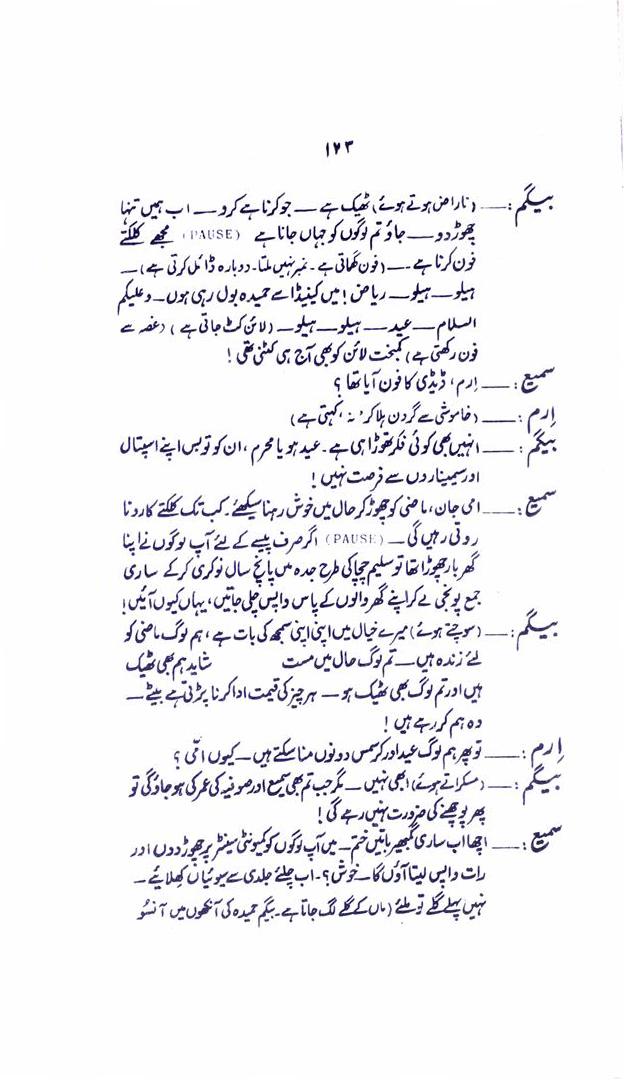 ۱۲۳
بیگم: ــــ (ناراض ہوتے ہوئے) ٹھیک ہے ــ جو کرنا ہے کرو ــ اب ہمیں تنہا
چھوڑ دو ــ جاؤ تم لوگوں کو جہاں جانا ہے (PAUSE) مجھے کلکتے
فون کرنا ہے ــ (فون گھماتی ہے۔ نمبر نہیں ملتا۔ دوبارہ ڈائل کرتی ہے) ــ
ہیلو ــ ہیلو ــ ریاض! میں کینیڈا سے حمیدہ بول رہی ہوں ــ وعلیکم
السلام ــ عید ــ ہیلو ــ ہیلو ــ (لائن کٹ جاتی ہے) (غصہ سے
فون رکھتی ہے) کمبخت لائن کو بھی آج ہی کٹنی تھی!
سمیع: ــــ ارم، ڈیڈی کا فون آیا تھا؟
اِرم: ــــ (خاموشی سے گردن ہلا کر 'نہ' کہتی ہے)
بیگم: ــــ انہیں بھی کوئی فکر تھوڑا ہی ہے۔ عید ہو یا محرم، ان کو تو بس اپنے اسپتال
اور سمیناروں سے فرصت نہیں!
سمیع: ــــ امی جان، ماضی کو چھوڑ کر حال میں خوش رہنا سیکھئے۔ کب تک کلکتے کا رونا
روتی رہیں گی ــ (PAUSE) اگر صرف پیسے کے لئے آپ لوگوں نے اپنا
گھر بار چھوڑا تھا تو سلیم چچا کی طرح جدہ میں پانچ سال نوکری کر کے ساری
جمع پونجی لے کر اپنے گھر والوں کے پاس واپس چلی جاتیں، یہاں کیوں آئیں!
بیگم: ــــ (سوچتے ہوئے) میرے خیال میں اپنی اپنی سمجھ کی بات ہے، ہم لوگ ماضی کو
لئے زندہ ہیں ــ تم لوگ حال میں مست شاید ہم بھی ٹھیک
ہیں اور تم لوگ بھی ٹھیک ہو ــ ہر چیز کی قیمت ادا کرنا پڑتی ہے بیٹے ــ
وہ ہم کر رہے ہیں!
اِرم: ــــ تو پھر ہم لوگ عید اور کرسمس دونوں منا سکتے ہیں ــ کیوں امّی؟
بیگم: ــــ (مسکراتے ہوئے) ابھی نہیں ــ مگر جب تم بھی سمیع اور صوفیہ کی عمر کی ہو جاؤ گی تو
پھر پوچھنے کی ضرورت نہیں رہے گی!
سمیع: ــــ اچھا اب ساری گمبھیر باتیں ختم ــ میں آپ لوگوں کو کمیونٹی سینٹر پر چھوڑ دوں اور
رات واپس لیتا آؤں گا ــ خوش؟ ۔ اب چلئے جلدی سے سویاں کھلایئے ــ
نہیں پہلے گلے تو ملئے (ماں کے گلے لگ جاتا ہے۔ بیگم حمیدہ کی آنکھوں میں آنسُو